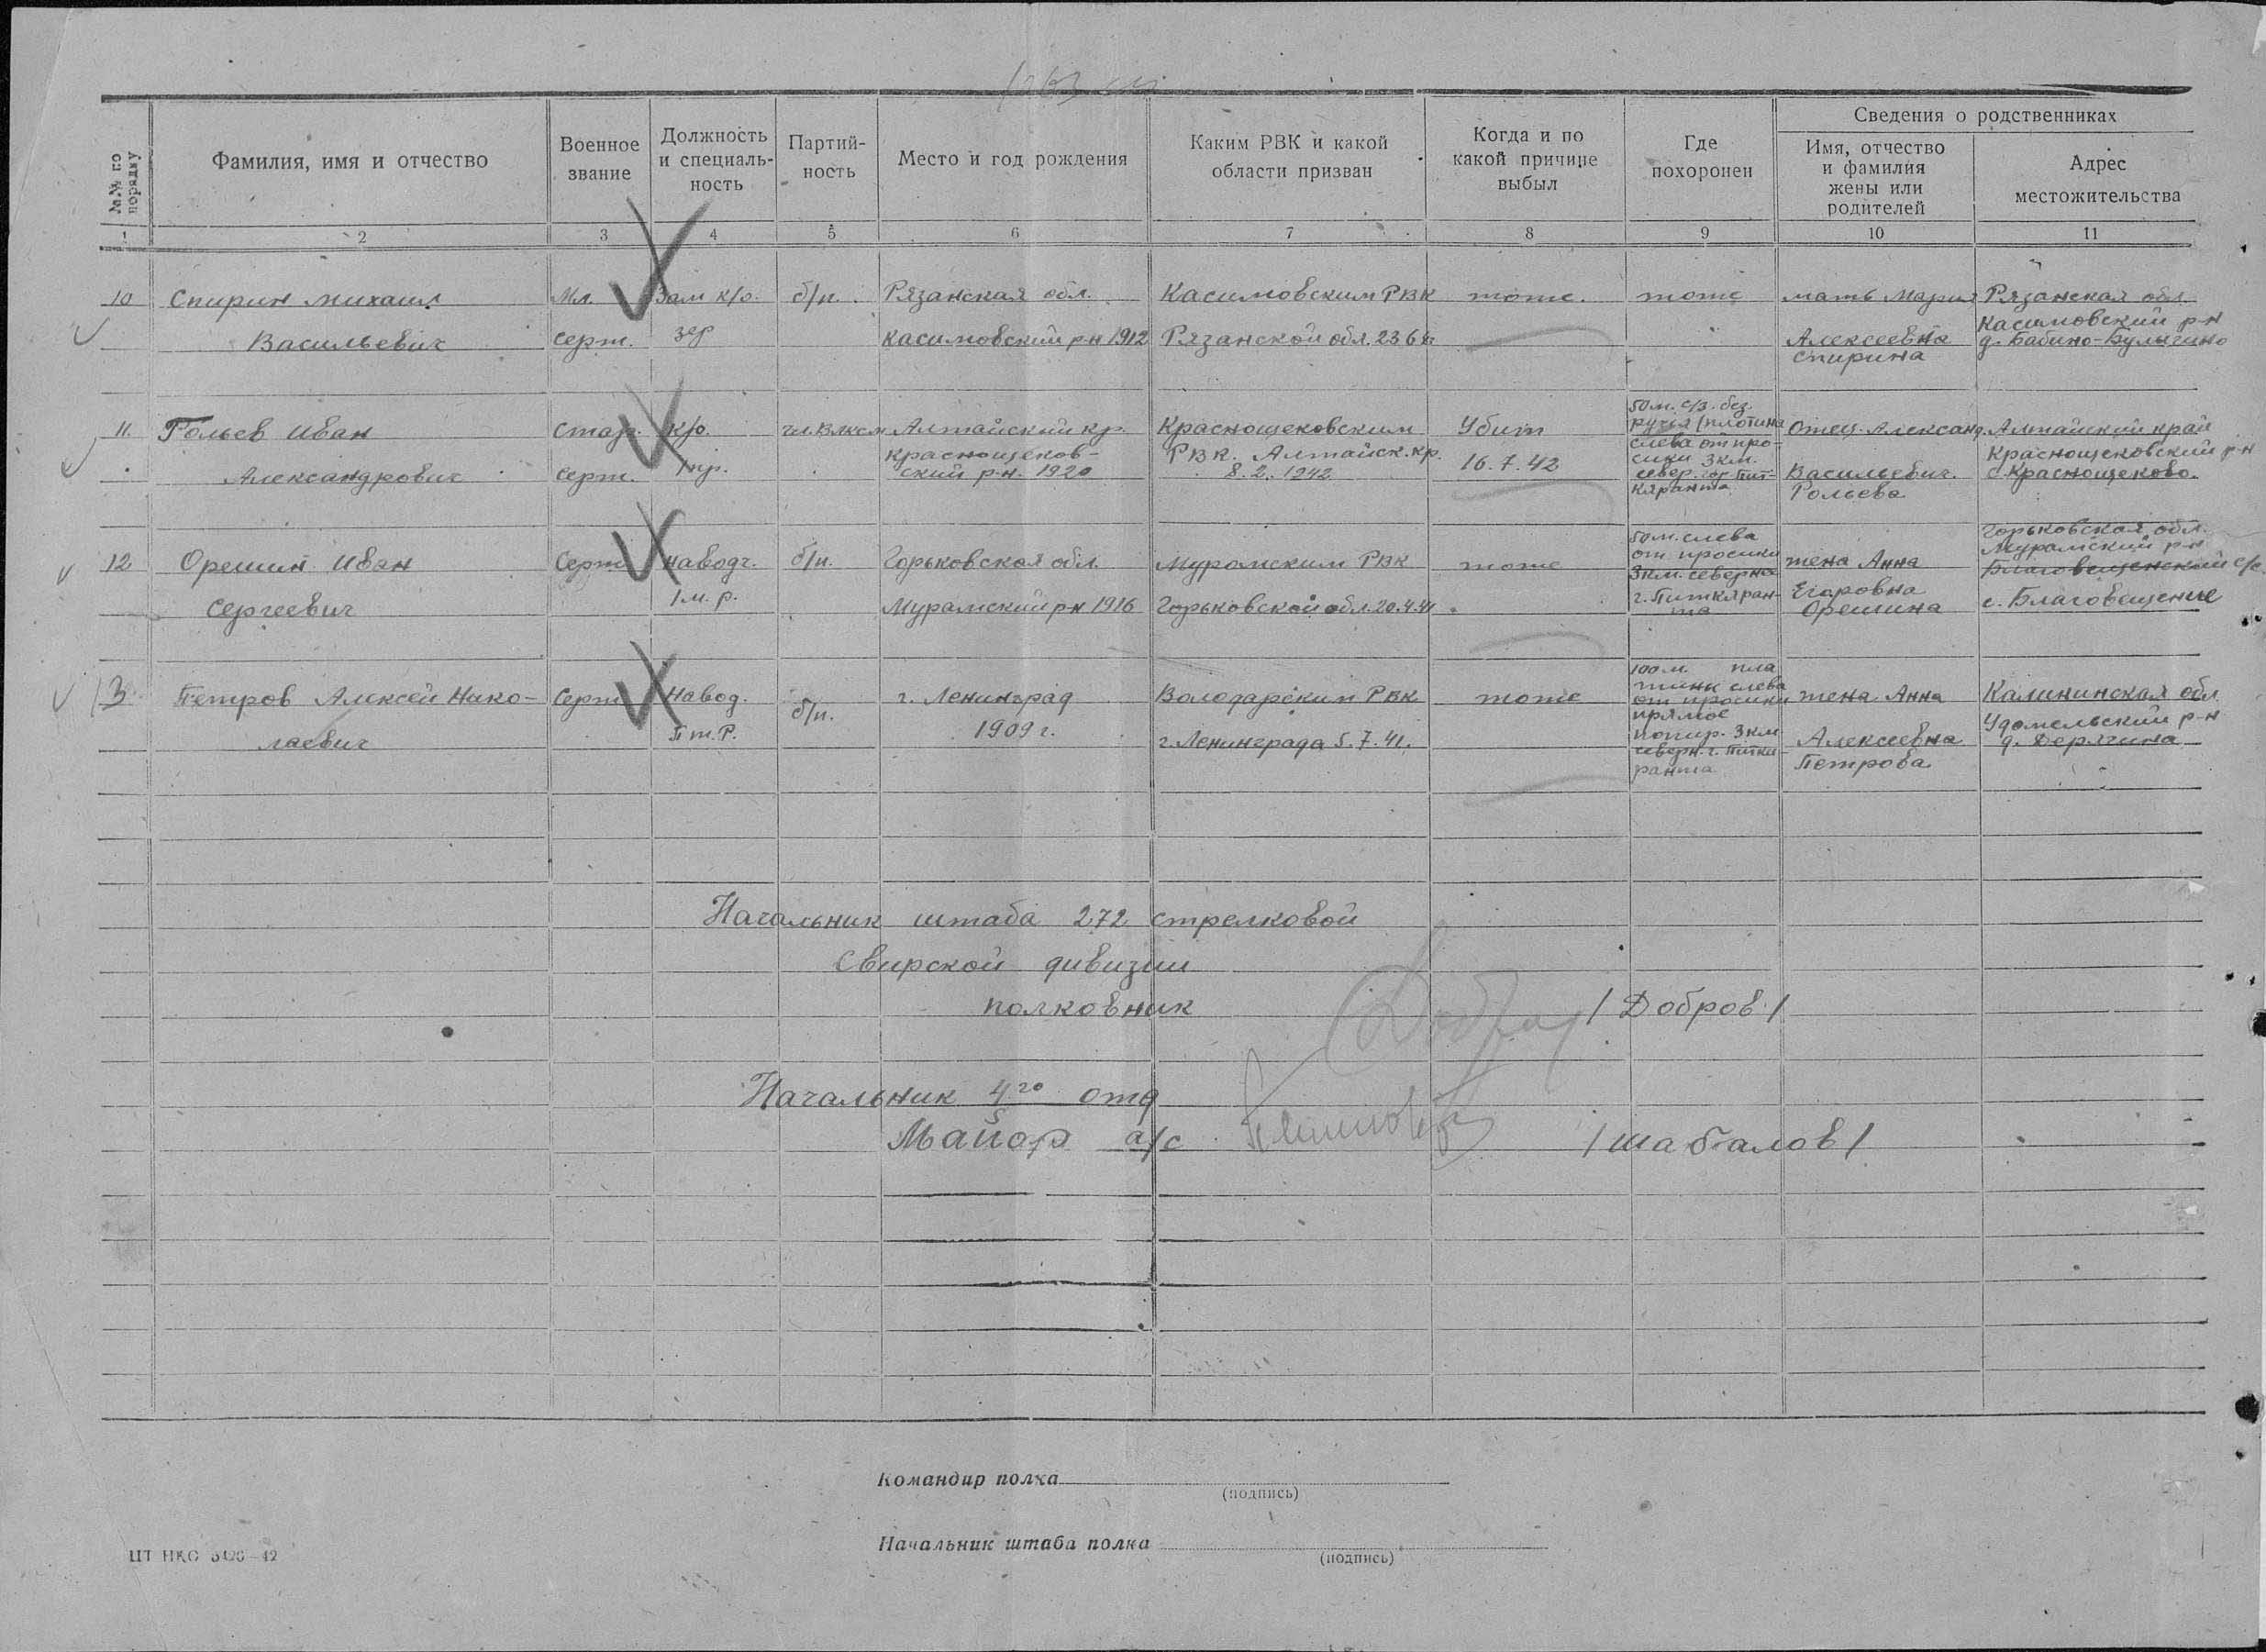 №№ по порядку
Фамилия, имя и отчество
Военное звание
Должность и специаль-ность
Партий-ность
Место и год рождения
Каким РВК и какой области призван
Когда и по какой причине выбыл
Где похоронен
Сведения о родственниках
Имя, отчество и фамилия жены или родителей
Адрес местожительства
1 2 3 4 5 6 7 8 9 10 11
10 Спирин Михаил Мл. Зам к/о. б/п. Рязанская обл. Касимовским РВК тоже. тоже мать Мария Рязанская обл.
Васильевич серж. Касимовский р-н 1912 Рязанской обл. Алексеевна Касимовский р-н
Спирина д. Бабино-Булыгино
11. Рольев Иван Старш. к/о. чл. ВЛКСМ Алтайский кр. Краснощековским Убит 50 м. с/з. без. ручья (плотина Отец Александ. Алтайский край
Александрович серж. Краснощеков-ский р-н. 1920 РВК. Алтайск. кр. 8.2.1942 16.7.42 слева от про-сики 3 км. север. г. Пит-кяранта Васильевич. Рольева Краснощековский р-н
с. Краснощеково.
12 Орешин Иван Серж. наводч. б/п. Горьковская обл. Муромским РВК тоже 50 м. слева от просики жена Анна Горьковская обл. Муромский р-н
Благовещенский с/с
Сергеевич Мурамский р-н 1916 Горьковской обл. 20.4.41 3 км. северна г. Питкяран-та Егоровна Орешина с. Благовещение
13 Петров Алексей Нико- Серж. Навод. б/п. г. Ленинград Володарским РВК тоже 100 м. пла тины слева от просики жена Анна Калининская обл
лаевич ПТР. 1909 г. г. Ленинграда 5.7.41. прямое 3 км северн. г. Питкяранта Алексеевна Петрова Удомельский р-н
д. Дерягина
Начальник штаба 272 стрелковой
Свирской дивизии
полковник / Добров /
Начальник 4го отд
Майор а/с / Шабалов /
Командир полка
(подпись)
Начальник штаба полка
(подпись)